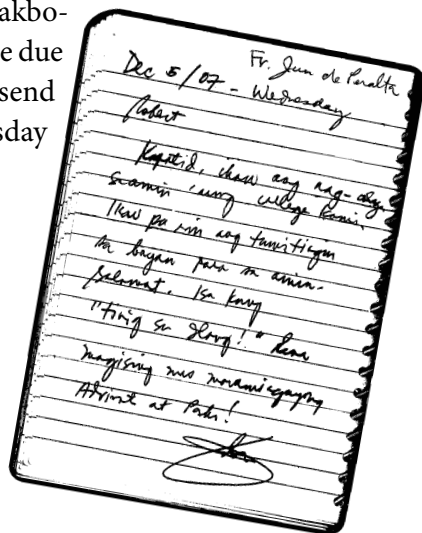 akbo-
e due
send
sday
Fr. Jun de Peralta
Dec 5/07 - Wednesday
Robert
Kapatid, ikaw ang nag-
sa amin nung college kami.
Ikaw pa rin ang tumitingin
sa bayan para sa amin.
Salamat. Isa kang
"tinig sa ilang!" Sana
magising mo
Advent at Pasko!